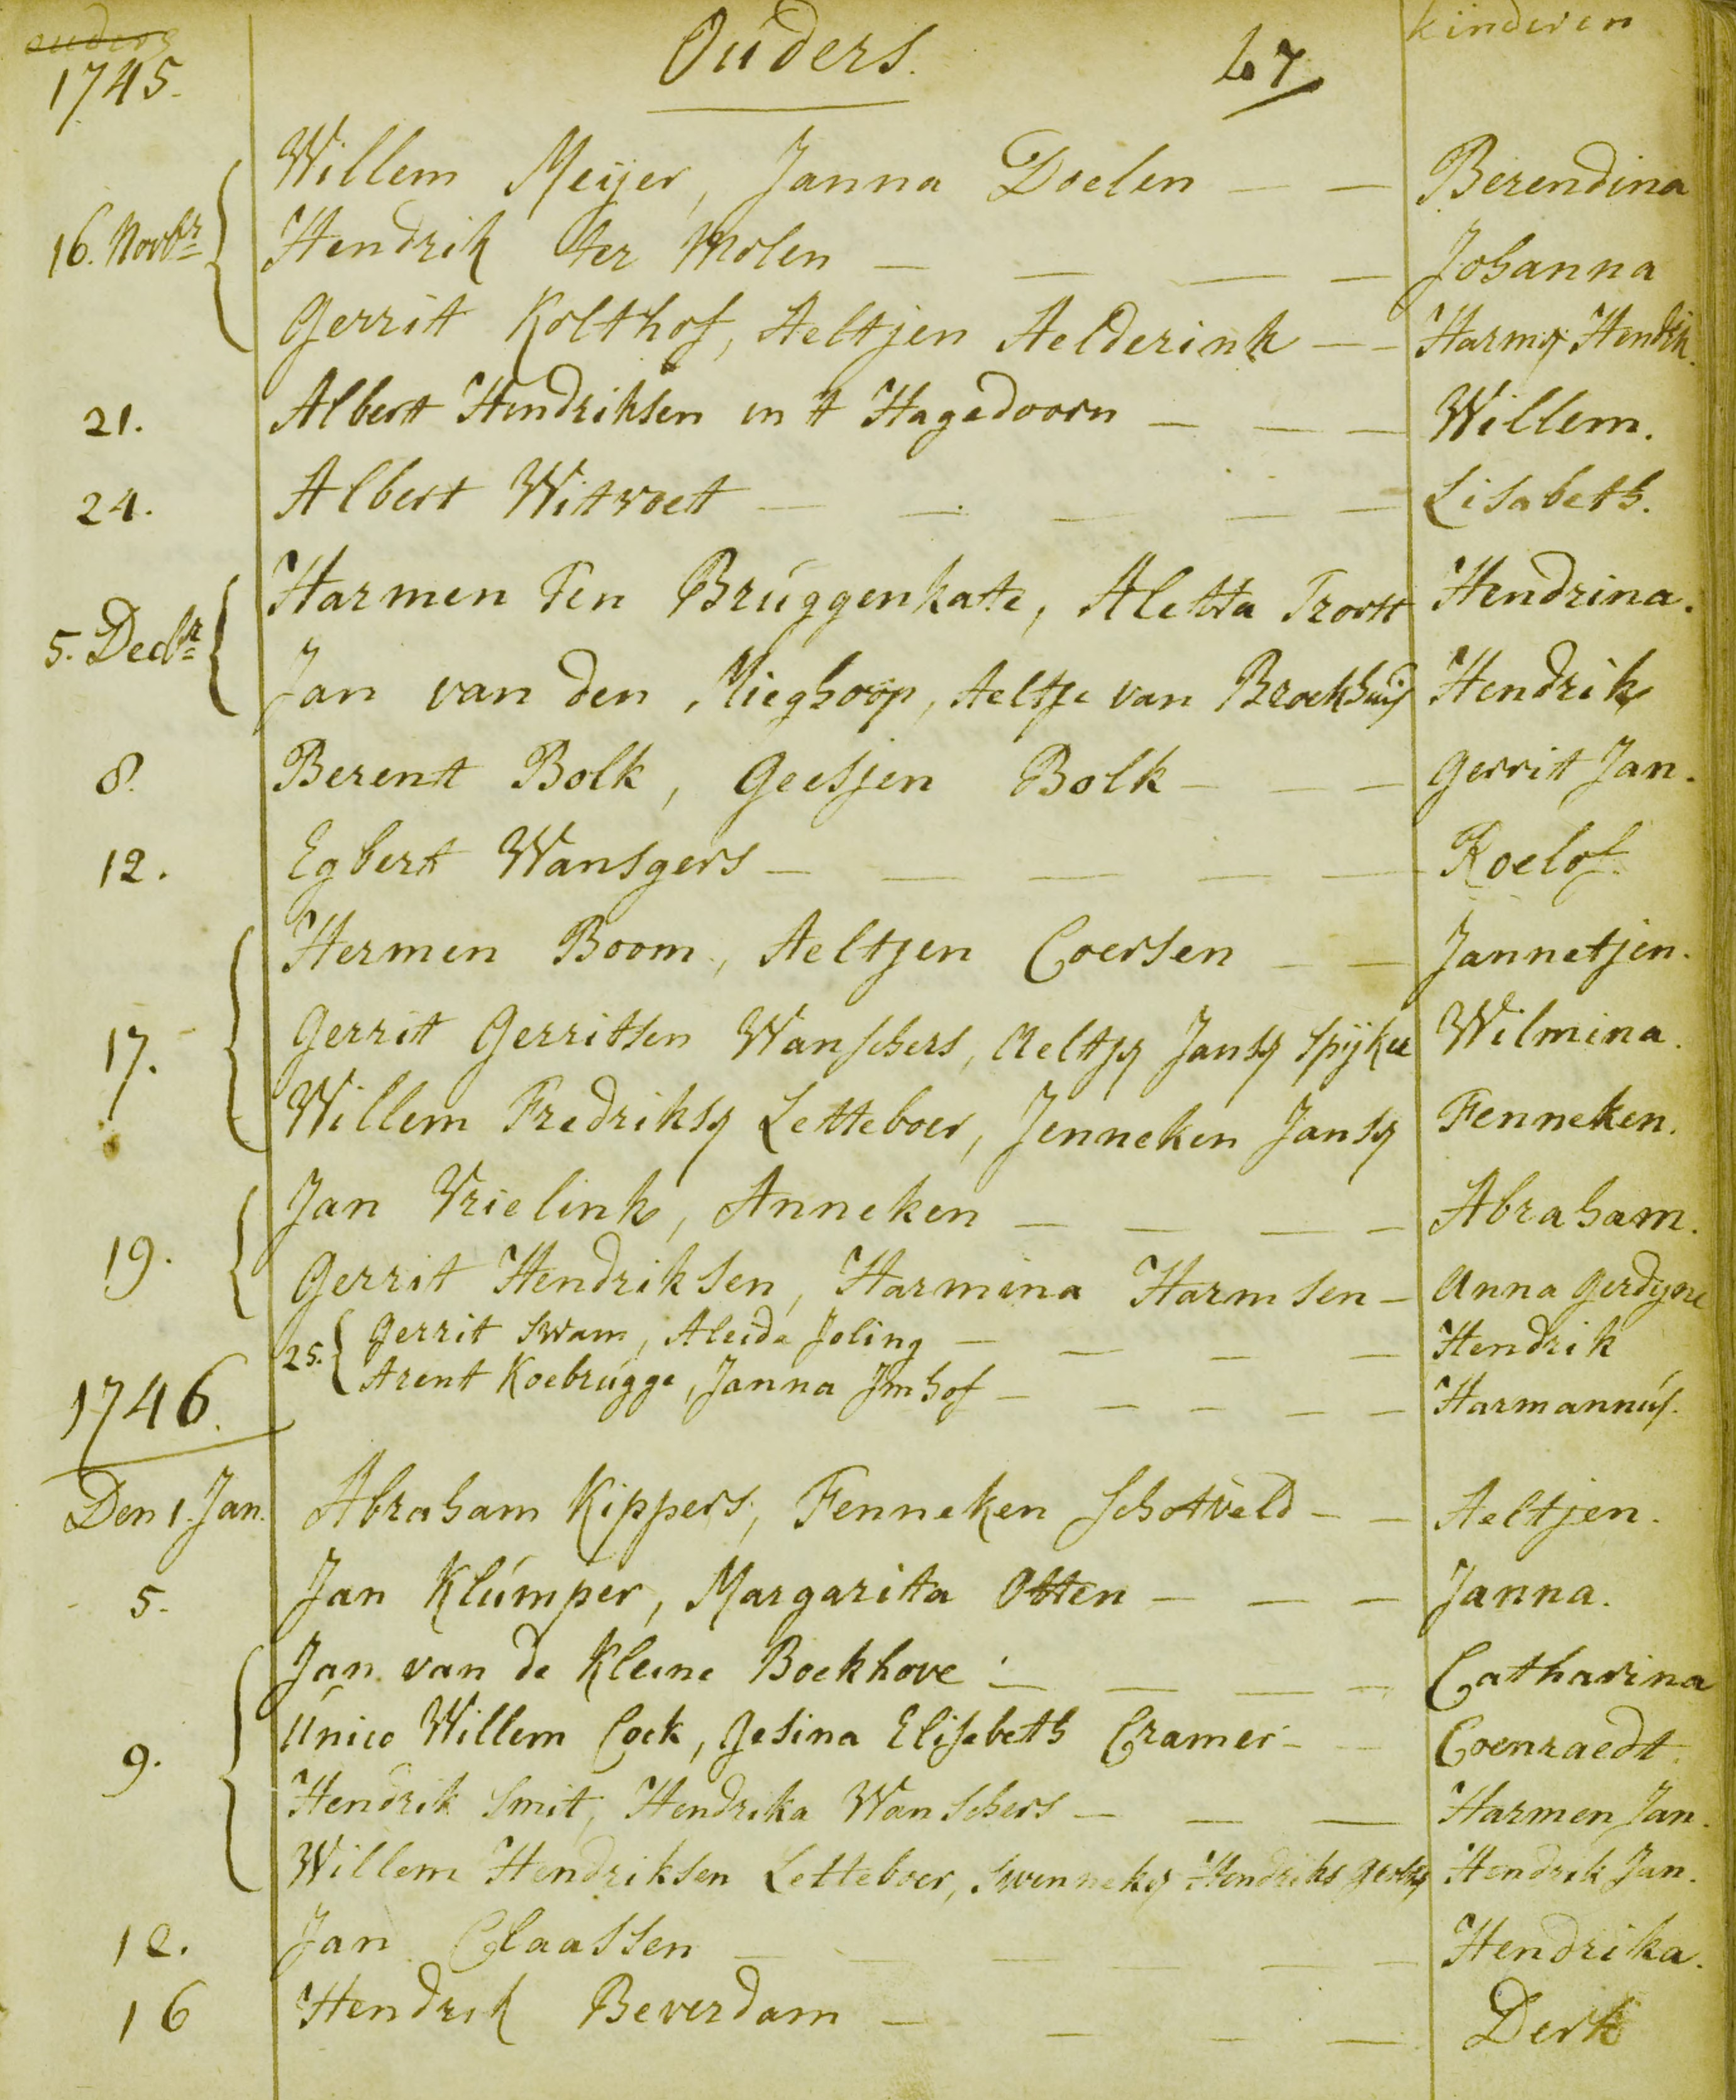 ouders Ouders. 67 kinderen
1745.
Willem Meijer, Janna Doelen — — Berendina
16. Novbr Hendrik ter Molen — — — — Johanna
Gerrit Kolthof, Aeltjen Aelderink — — Harmen Hendrik.
21. Albert Hendriksen in t Hagedoorn — — — Willem.
24. Albert Witvoet — — — — — Lisabeth.
Harmen Ten Brúggenkate, Aletta Troost Hendrina.
5. Decbr Jan van den Mieghoop, Aeltje van Broekhuijs Hendrik
8. Berent Bolk, Geesjen Bolk — — — Gerrit Jan.
12. Egbert Wansgers — — — — — Roelof.
Hermen Boom, Aeltjen Coersen — — Jannetjen.
17. Gerrit Gerritsen Wanschers, Aeltjen Jansen Spijker Wilmina.
Willem Fredriksen Letteboer, Jenneken Jansen Fenneken.
Jan Vrielink, Anneken — — — — Abraham.
19. Gerrit Hendriksen, Harmina Harmsen — Anna Gerdijne
25. Gerrit Swam, Aleida Joling — — — — Hendrik
Arent Koebrúgge, Janna Jmhof — — — — — Harmannús.
1746.
Den 1. Jan. Abraham Kippers, Fenneken Schotveld — — Aeltjen.
5. Jan Klúmper, Margarita Otten — — — Janna.
Jan van de Kleine Boekhove — — — — Catharina
9. Único Willem Cock, Gesina Elisebeth Cramer — — Coenraedt.
Hendrik Smit, Hendrika Wanschers — — — Harmen Jan.
Willem Hendriksen Letteboer, Swenneken Hendriks Hendrik Jan.
12. Jan Claassen — — — — — — Hendrika.
16 Hendrik Beverdam — — — — Derk